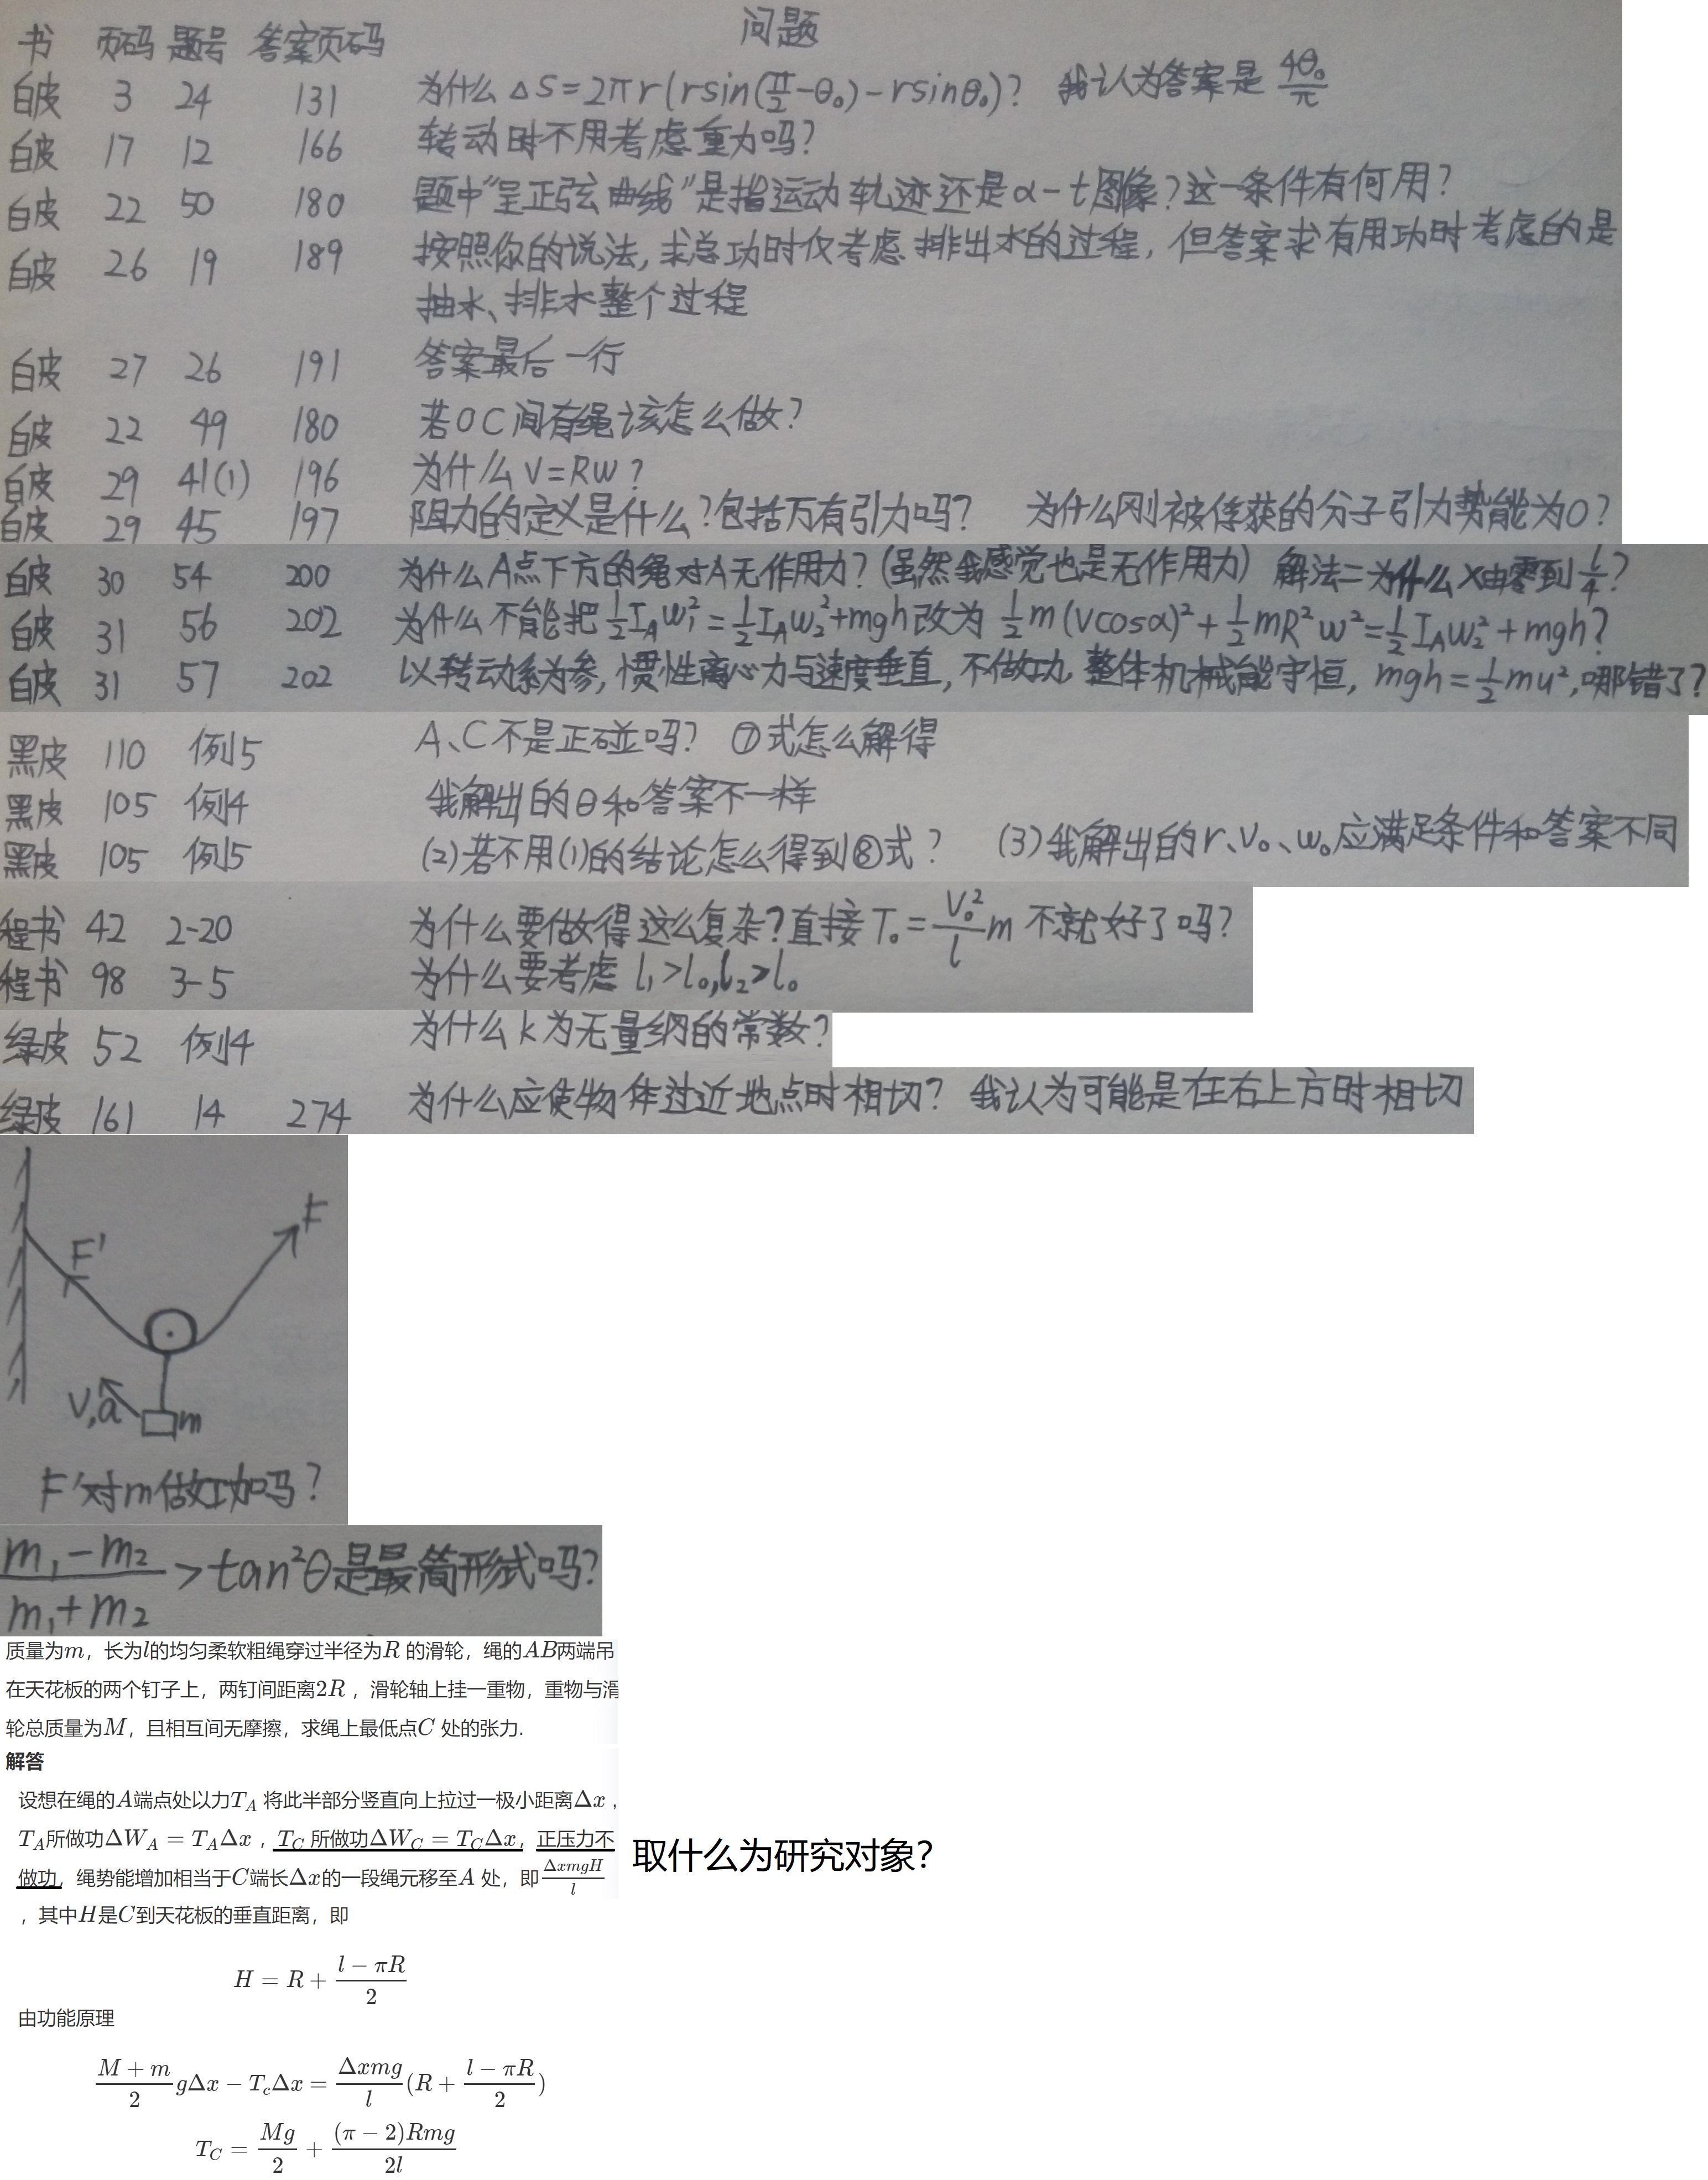 书 页码 题号 答案页码 问题
白皮 3 24 131 为什么 ΔS=2πr(rsin(π/2-θ₀)-rsinθ₀)? 我认为答案是 4θ₀/π
白皮 17 12 166 转动时不用考虑重力吗?
白皮 22 50 180 题中"呈正弦曲线"是指运动轨迹还是α-t图像?这一条件有何用?
白皮 26 19 189 按照你的说法,求总功时仅考虑排出水的过程,但答案求有用功时考虑的是
抽水、排水整个过程
白皮 27 26 191 答案最后一行
白皮 22 49 180 若OC间有绳该怎么做?
白皮 29 41(1) 196 为什么V=Rw?
白皮 29 45 197 阻力的定义是什么?包括万有引力吗? 为什么刚被俘获的分子引力势能为0?
白皮 30 54 200 为什么A点下方的绳对A无作用力?(虽然我感觉也是无作用力) 解法二为什么x由零到l/4?
白皮 31 56 202 为什么不能把½I_Aw₁²=½I_Aw₂²+mgh改为½m(vcosα)²+½mR²w²=½I_Aw₂²+mgh?
白皮 31 57 202 以转动系为参,惯性离心力与速度垂直,不做功,整体机械能守恒,mgh=½mu²,哪错了?
黑皮 110 例5 A、C不是正碰吗? ⑦式怎么解得
黑皮 105 例4 我解出的θ和答案不一样
黑皮 105 例5 (2)若不用(1)的结论怎么得到⑧式? (3)我解出的r、V₀、w₀应满足条件和答案不同
程书 42 2-20 为什么要做得这么复杂?直接T₀=V₀²/l m 不就好了吗?
程书 98 3-5 为什么要考虑 l₁>l₀,l₂>l₀
绿皮 52 例4 为什么k为无量纲的常数?
绿皮 161 14 274 为什么应使物体过近地点时相切? 我认为可能是在右上方时相切
F
F'
V,a
m
F'对m做功吗?
(m₁-m₂)/(m₁+m₂)>tan²θ是最简形式吗?
质量为m，长为l的均匀柔软粗绳穿过半径为R 的滑轮，绳的AB两端吊
在天花板的两个钉子上，两钉间距离2R ，滑轮轴上挂一重物，重物与滑
轮总质量为M，且相互间无摩擦，求绳上最低点C 处的张力.
解答
设想在绳的A端点处以力T_A 将此半部分竖直向上拉过一极小距离Δx ，
T_A所做功ΔW_A = T_AΔx ，T_C 所做功ΔW_C = T_CΔx，正压力不
做功，绳势能增加相当于C端长Δx的一段绳元移至A 处，即ΔxmgH/l
，其中H是C到天花板的垂直距离，即
取什么为研究对象?
H = R + (l - πR)/2
由功能原理
(M + m)/2 gΔx - T_cΔx = Δxmg/l (R + (l - πR)/2)
T_C = Mg/2 + (π - 2)Rmg/2l